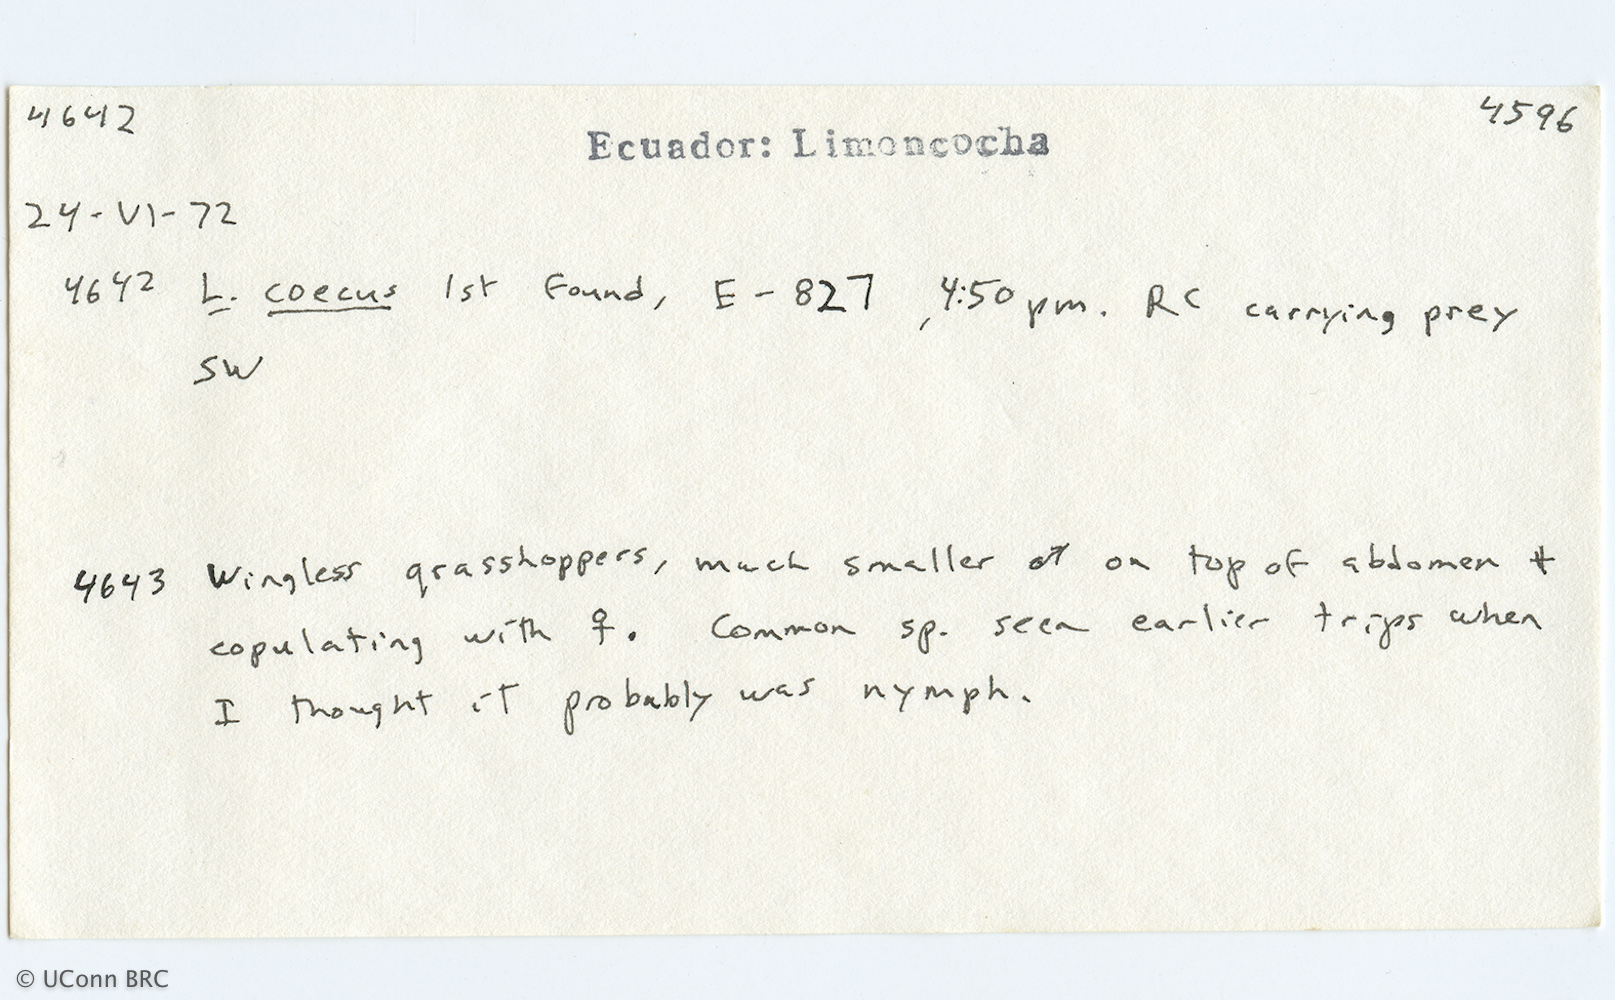 4642
4596
Ecuador: Limoncocha
24-VI-72
4642 L. coecus 1st found, E-827, 4:50 pm. RC carrying prey
SW
4643 Wingless grasshoppers, much smaller ♂ on top of abdomen +
copulating with ♀. Common sp. seen earlier trips when
I thought it probably was nymph.
© UConn BRC